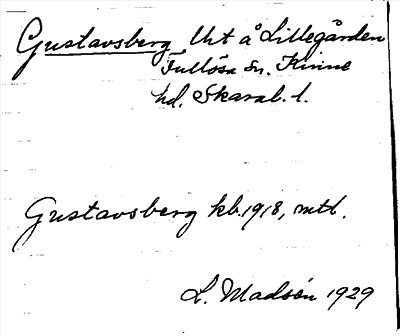 Gustavsberg, lht å Lillegården
Fullösa sn. Kinne
hd. Skarab. l.
Gustavsberg kb.1918, mtl.
L. Madsén 1929